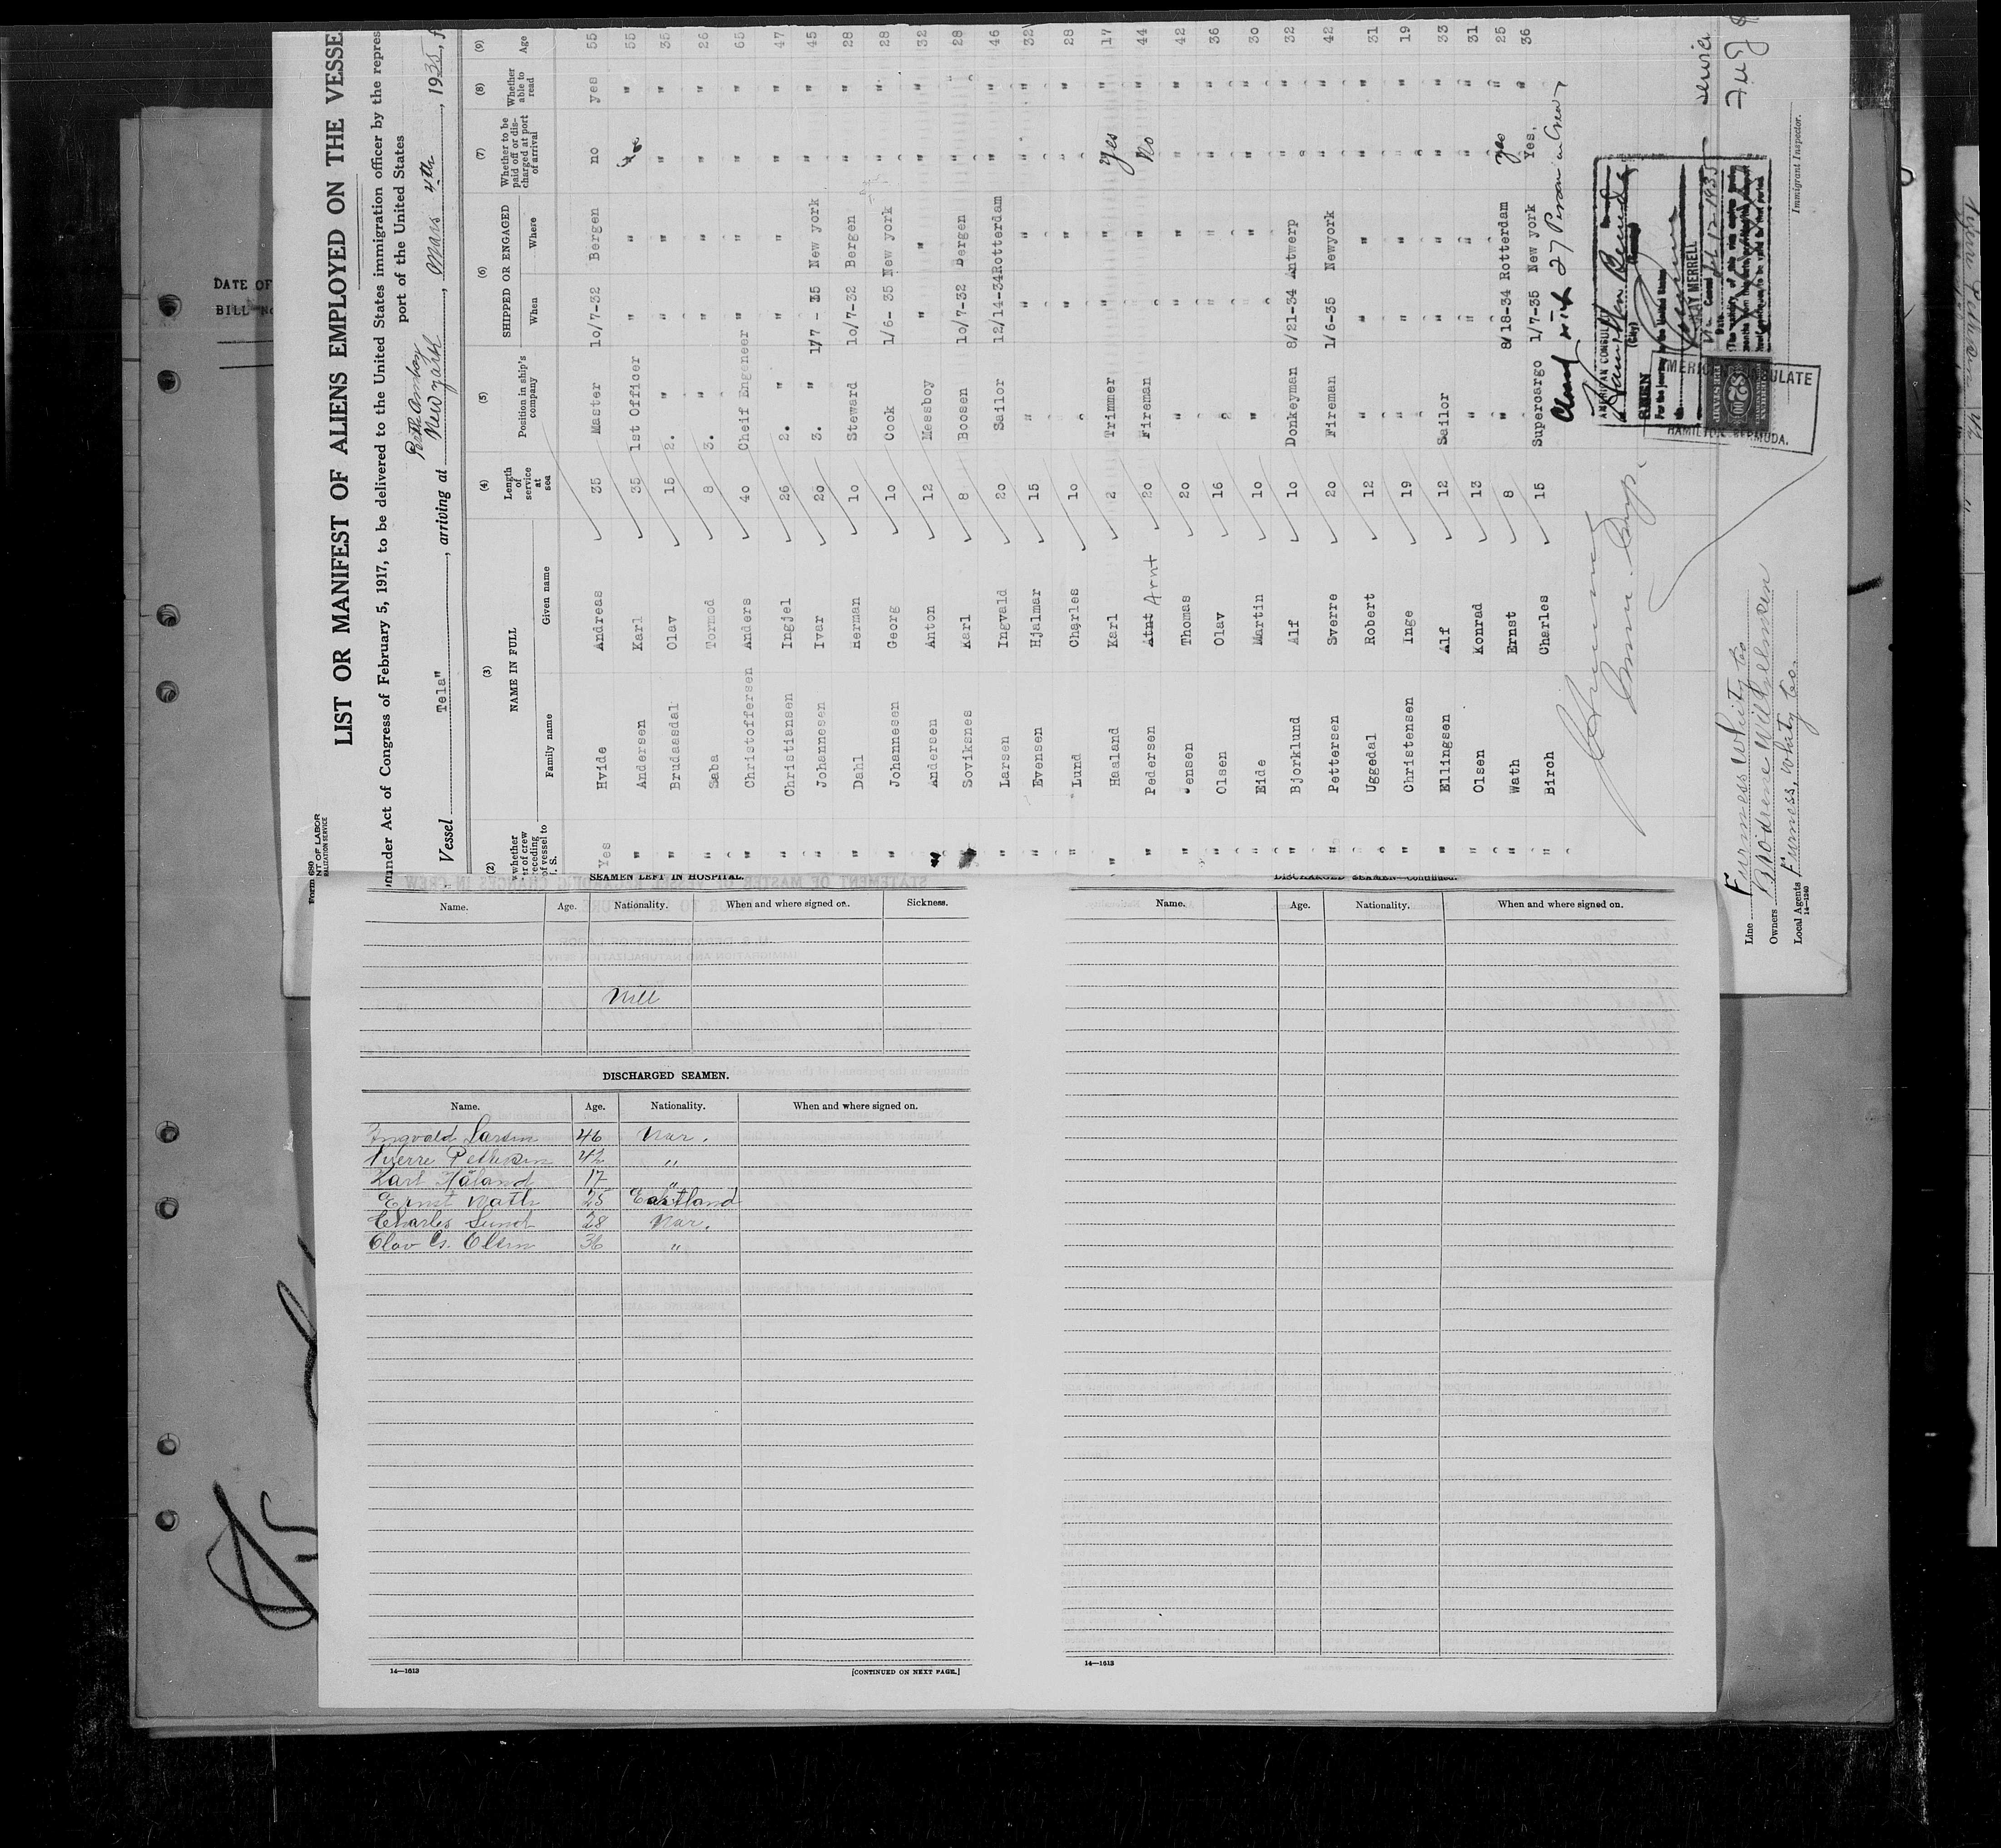 Form 680
NT OF LABOR
LIST OR MANIFEST OF ALIENS EMPLOYED ON THE VESSE
under Act of Congress of February 5, 1917, to be delivered to the United States immigration officer by the repres
port of the United States
Perth Amboy
Vessel Tela" , arriving at New York , Mars 4th , 1935, f
(2) (3) (4) (5) (6) (7) (8) (9)
NAME IN FULL
Family name Given name
Length of service at sea
Position in ship's company
SHIPPED OR ENGAGED
When Where
Whether to be paid off or discharged at port of arrival
Whether able to read
Age
Yes Hvide Andreas 35 Master 10/7-32 Bergen no yes 55
" Andersen Karl 35 1st Officer " " " 55
" Brudaasdal Olav 15 2. " " " " 35
" Saba Tormod 8 3. " " " " 26
" Christoffersen Anders 40 Cheif Engeneer " " " " 65
" Christiansen Ingjel 26 2. " " " " " 47
" Johannesen Ivar 20 3. " 1/7 - 35 New york " " 45
" Dahl Herman 10 Steward 10/7-32 Bergen " " 28
" Johannesen Georg 10 Cook 1/6- 35 New york " " 28
" Andersen Anton 12 Messboy " " " " 32
Soviksnes Karl 8 Boosen 10/7-32 Bergen " " 28
" Larsen Ingvald 20 Sailor 12/14-34 Rotterdam " " 46
" Evensen Hjalmar 15 " " " " " 32
" Lund Charles 10 " " " " " 28
" Haaland Karl 2 Trimmer " " Yes " 17
" Pedersen Atnt Arnt 20 Fireman " " No " 44
" Jensen Thomas 20 " " " " " 42
" Olsen Olav 16 " " " " " 36
" Eide Martin 10 " " " " " 30
" Bjorklund Alf 10 Donkeyman 8/21-34 Antwerp " " 32
" Pettersen Sverre 20 Fireman 1/6-35 Newyork " " 42
" Uggedal Robert 12 " " " " " 31
" Christensen Inge 19 " " " " " 19
" Ellingsen Alf 12 Sailor " " " " 33
" Olsen Konrad 13 " " " " " 31
" Wath Ernst 8 " 8/18-34 Rotterdam yes " 25
" Birch Charles 15 Supercargo 1/7-35 New york Yes, " 36
Closed with 27 Person in Crew
AMERICAN CONSULATE
Hamilton Bermuda
(City)
SEEN
MERRELL
AMERICAN CONSULATE
HAMILTON, BERMUDA.
service
Immigrant Inspector.
Line Furness Whity Co
Owners Brödrene Wilhelmsen
Local Agents Furness, Whity Co.
14-1240
DATE OF
BILL No
SEAMEN LEFT IN HOSPITAL.
Name. Age. Nationality. When and where signed on. Sickness.
Nill
DISCHARGED SEAMEN.
Name. Age. Nationality. When and where signed on.
Ingvald Larsen 46 Nor.
Sverre Pettersen 42 "
Karl Håland 17 "
Ernst Wath 25 Eastland
Charles Lund 28 Nor.
Olav Cs. Olsen 36 "
14—1613 [CONTINUED ON NEXT PAGE.]
DISCHARGED SEAMEN—Continued.
Name. Age. Nationality. When and where signed on.
14—1613